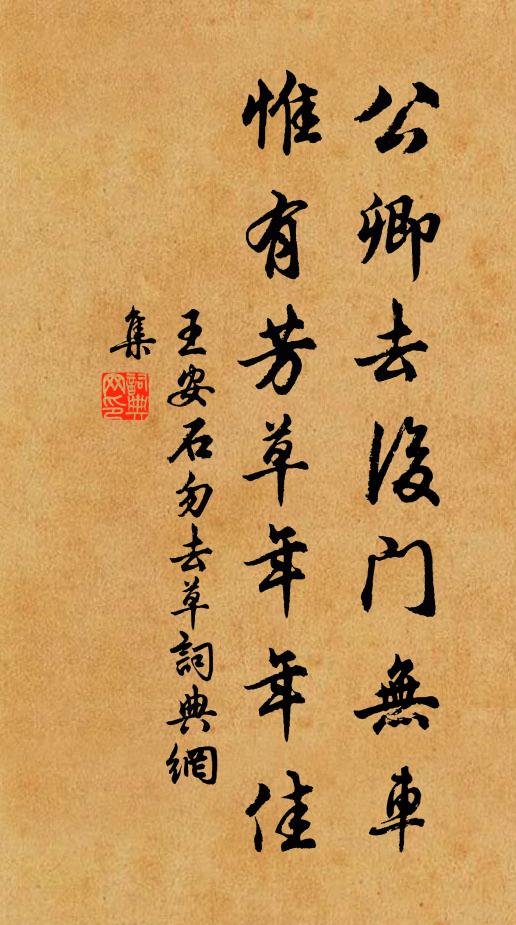 公卿去後門無車
惟有芳草年年佳
王安石勿去草詞典網
集
詞典
网印